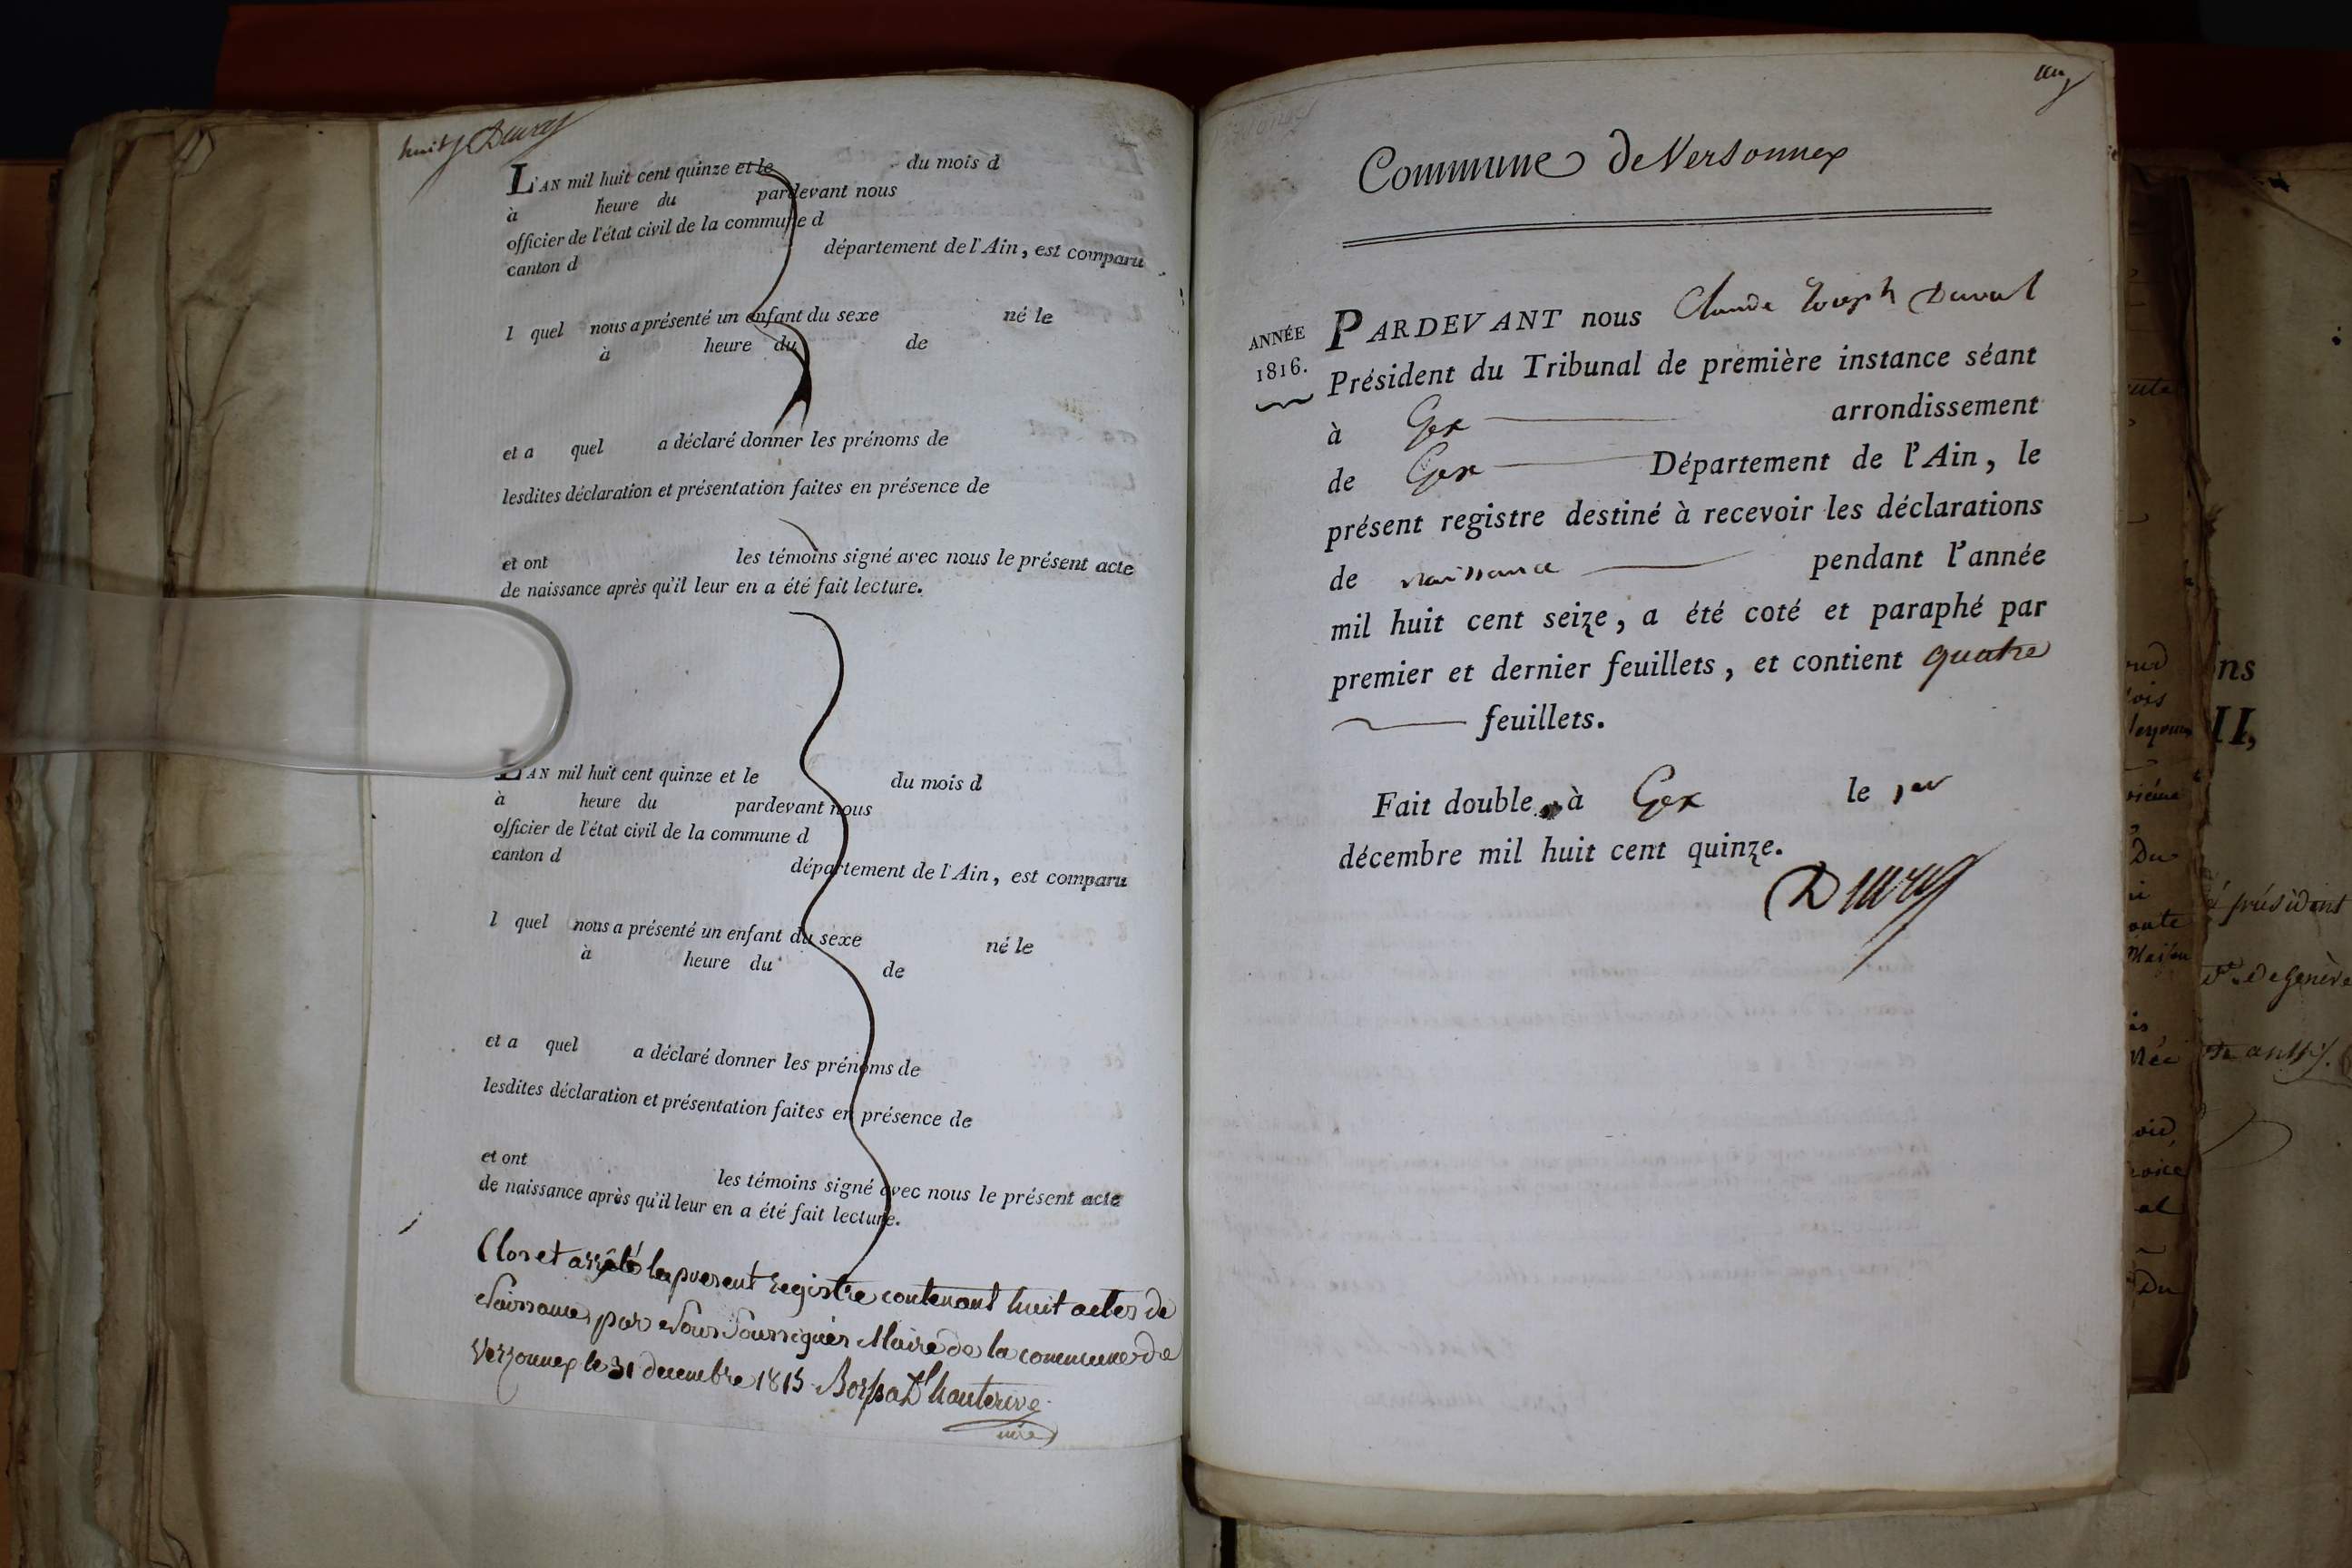 huit Duval
L'AN mil huit cent quinze et le du mois d
à heure du pardevant nous
officier de l'état civil de la commune d
canton d département de l'Ain, est comparu
l quel nous a présenté un enfant du sexe né le
à heure du de
et a quel a déclaré donner les prénoms de
lesdites déclaration et présentation faites en présence de
et ont les témoins signé avec nous le présent acte
de naissance après qu'il leur en a été fait lecture.
L'AN mil huit cent quinze et le du mois d
à heure du pardevant nous
officier de l'état civil de la commune d
canton d département de l'Ain, est comparu
l quel nous a présenté un enfant du sexe né le
à heure du de
et a quel a déclaré donner les prénoms de
lesdites déclaration et présentation faites en présence de
et ont les témoins signé avec nous le présent acte
de naissance après qu'il leur en a été fait lecture.
Clos et arrêté le present Registre contenant huit actes de
Naissance, par Nous Soussignés Maire de la commune de
Versonnex le 31 decembre 1815
d'hauterive
Commune de Versonnex
ANNÉE
1816.
PARDEVANT nous Claude Joseph Duval
Président du Tribunal de première instance séant
à Gex arrondissement
de Gex Département de l'Ain, le
présent registre destiné à recevoir les déclarations
de naissance pendant l'année
mil huit cent seize, a été coté et paraphé par
premier et dernier feuillets, et contient quatre
feuillets.
Fait double à Gex le 1er
décembre mil huit cent quinze.
Duval
ns
II,
président
de Genève